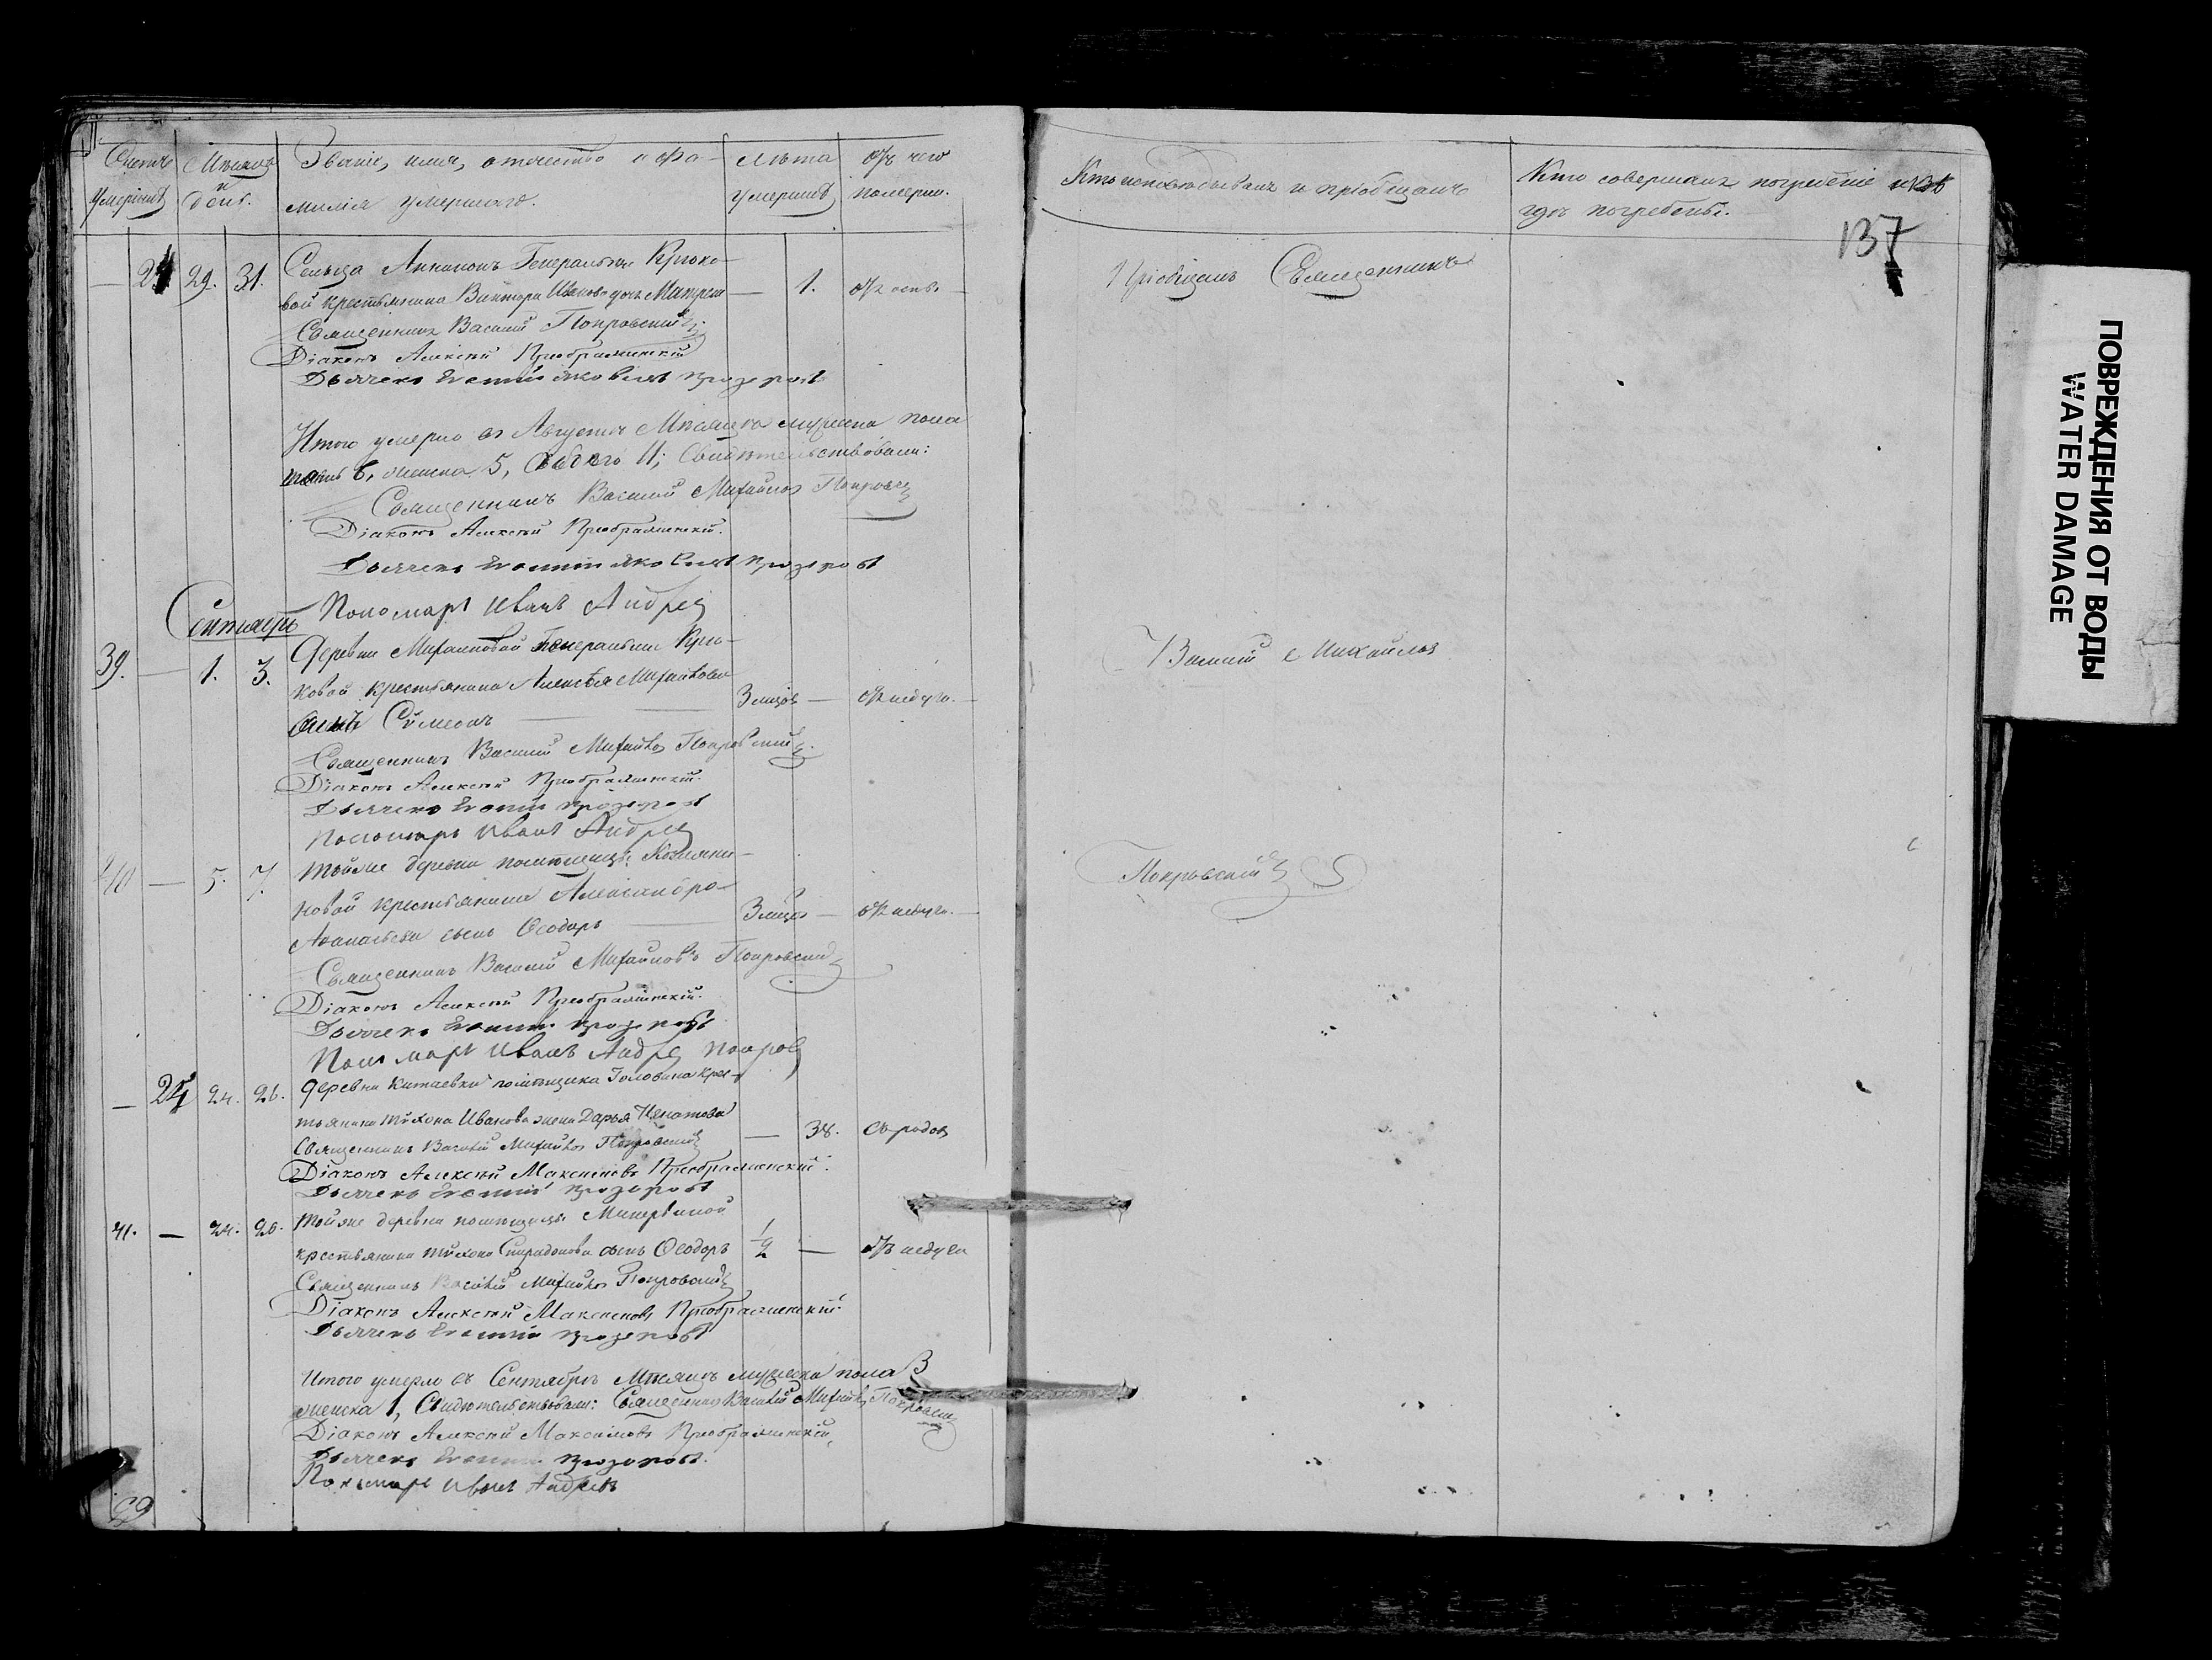 Счетъ умершихъ
Мѣсяцъ и день.
Званіе, имя, отчество и фамилія умершаго.
Лѣта умершихъ
Отъ чего померли.
Кто исповѣдывалъ и пріобщалъ
Кто совершалъ погребеніе и
гдѣ погребены.
137
— 29. 31. Сельца Генеральши Крюко-
вой крестьянина Виктора Иванова дочь Матрена — 1. отъ оспы
Священникъ Василій Покровскій
Діаконъ Алексѣй Преображенскій
Дьячекъ Яковлевъ
Пріобщалъ Священникъ
Итого умерло въ Августѣ Мѣсяцѣ мужеска пола
6, женска 5, Обоего 11; Свидѣтельствовали:
Священникъ Василій Михайловъ Покровскій
Діаконъ Алексѣй Преображенскій.
Дьячекъ Яковлевъ
Пономарь Иванъ Андреевъ
Сентябрь
39. — 1. 3. Деревни Генеральши Крю-
ковой крестьянина Алексѣя Михайлова
сынъ Симеонъ — 3 мѣсяц. — отъ недуга.
Священникъ Василій Михайловъ Покровскій
Діаконъ Алексѣй Преображенскій.
Дьячекъ
Пономарь Иванъ Андреевъ
Василій Михайловъ
40 — 5. 7. Той же деревни помѣщицы
новой крестьянина Александра
Аѳанасьева сынъ Ѳеодоръ — 3 мѣсяц. — отъ недуга.
Священникъ Василій Михайловъ Покровскій
Діаконъ Алексѣй Преображенскій.
Дьячекъ
Пономарь Иванъ Андреевъ
Покровскій
— 24. 26. Деревни Китаевки помѣщика Головина крес-
тьянина Тихона Иванова жена Дарья — 38. съ родовъ
Священникъ Василій Михайловъ Покровскій
Діаконъ Алексѣй Максимовъ Преображенскій.
Дьячекъ
41. — 24. 26. Той же деревни помѣщицы
крестьянина Тихона Спиридонова сынъ Ѳеодоръ 1/2 — отъ недуга
Священникъ Василій Михайловъ Покровскій
Діаконъ Алексѣй Максимовъ Преображенскій.
Дьячекъ
Итого умерло въ Сентябрѣ Мѣсяцѣ мужеска пола 3
женска 1, Свидѣтельствовали: Священникъ Василій Михайловъ Покровскій
Діаконъ Алексѣй Максимовъ Преображенскій.
Дьячекъ
Пономарь Иванъ Андреевъ
ПОВРЕЖДЕНИЯ ОТ ВОДЫ
WATER DAMAGE